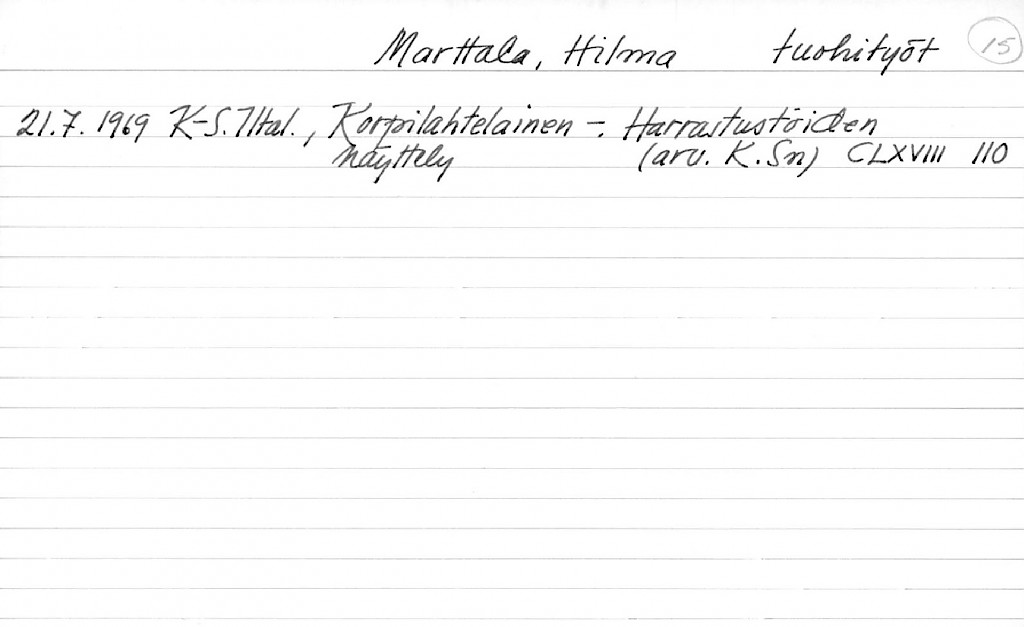 Marttala, Hilma tuohityöt 15
21.7. 1969 K-S. Iltal., Korpilahtelainen -: Harrastustöiden
näyttely (arv. K. Sn) CLXVIII 110